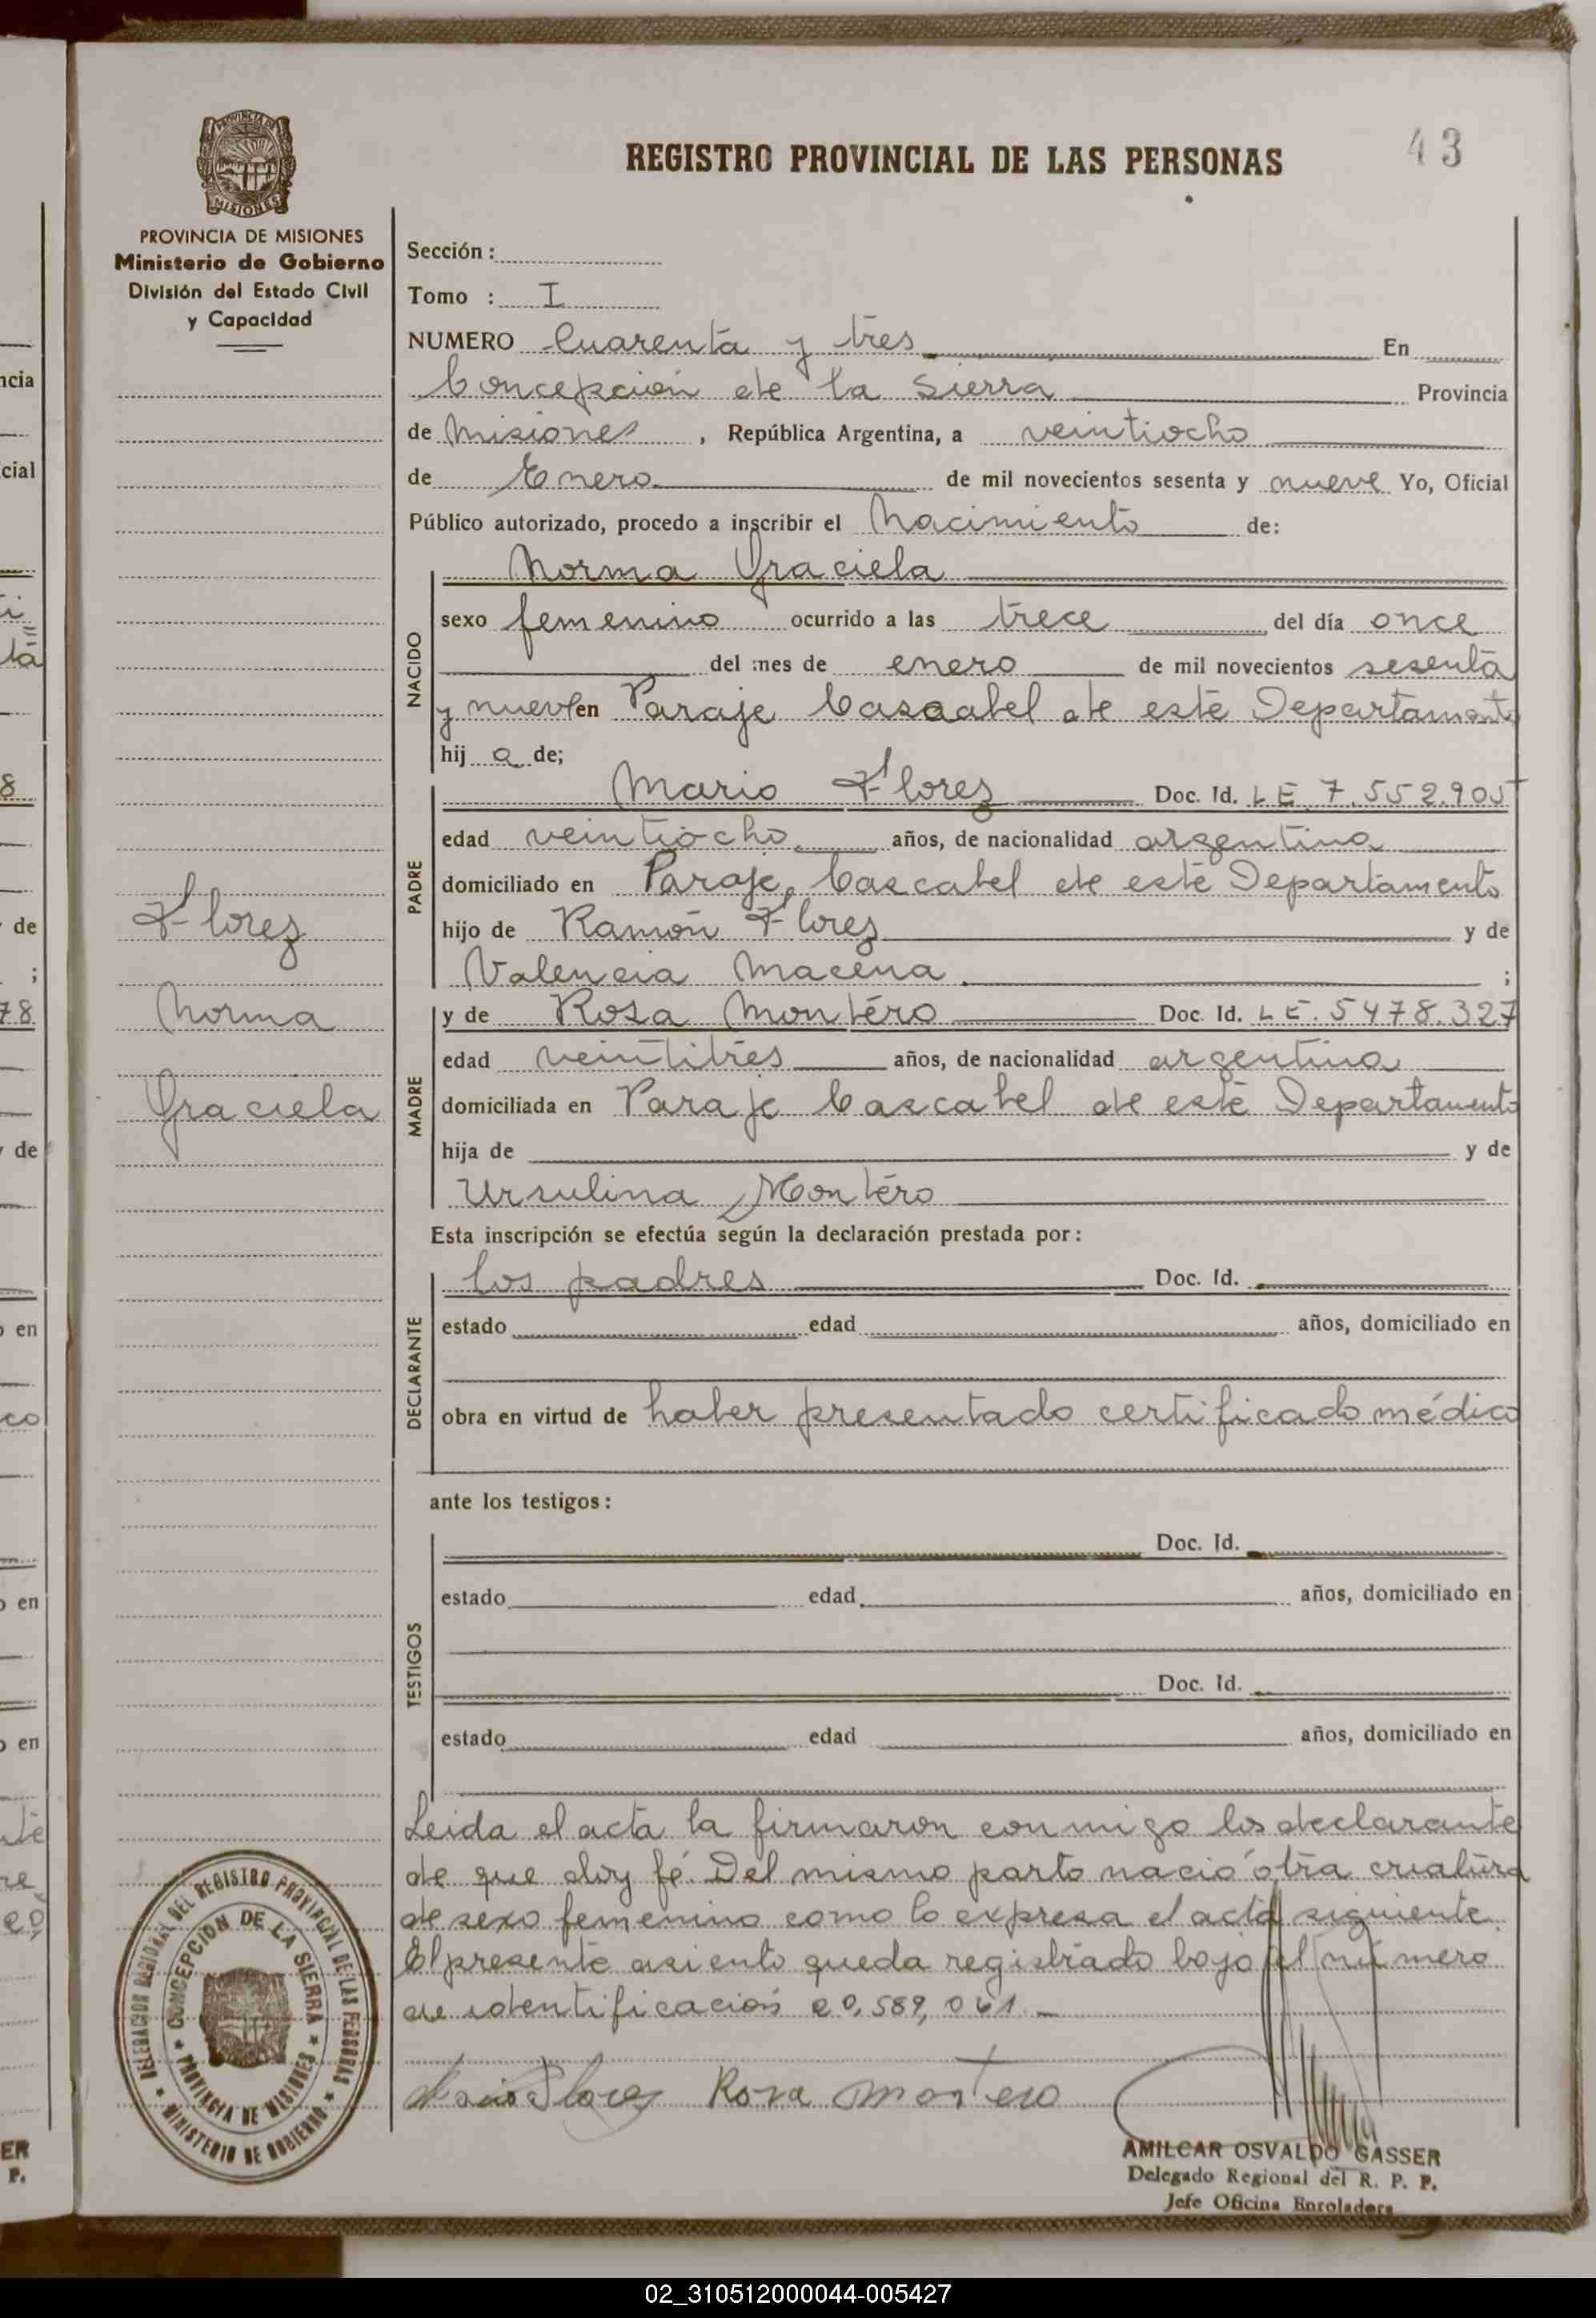 43
REGISTRO PROVINCIAL DE LAS PERSONAS
MISIONES
PROVINCIA DE MISIONES
Ministerio de Gobierno
División del Estado Civil
y Capacidad
Flores
Norma
Graciela
Sección :
Tomo : I
NUMERO Cuarenta y tres En
Concepción de la Sierra Provincia
de Misiones , República Argentina, a veintiocho
de Enero de mil novecientos sesenta y nueve Yo, Oficial
Público autorizado, procedo a inscribir el Nacimiento de:
NACIDO
Norma Graciela
sexo femenino ocurrido a las trece del día once
del mes de enero de mil novecientos sesenta
y nueve en Paraje Cascabel de este Departamento
hij a de;
PADRE
Mario Flores Doc. Id. LE 7.552.905
edad veintiocho años, de nacionalidad argentina
domiciliado en Paraje Cascabel de este Departamento
hijo de Ramón Flores y de
Valencia Macena ;
MADRE
y de Rosa Montero Doc. Id. LE. 5478.327
edad veintitres años, de nacionalidad argentina
domiciliada en Paraje Cascabel de este Departamento
hija de y de
Ursulina Montero
Esta inscripción se efectúa según la declaración prestada por :
DECLARANTE
los padres Doc. Id.
estado edad años, domiciliado en
obra en virtud de haber presentado certificado médico
ante los testigos :
TESTIGOS
Doc. Id.
estado edad años, domiciliado en
Doc. Id.
estado edad años, domiciliado en
Leida el acta la firmaron conmigo los declarante
de que doy fé. Del mismo parto nació otra criatura
de sexo femenino como lo expresa el acta siguiente.
El presente asiento queda registrado bajo el número
de identificación 20,589,061.-
Mario Flores Rosa Montero
DELEGACION REGIONAL DEL REGISTRO PROVINCIAL DE LAS PERSONAS
MINISTERIO DE GOBIERNO
CONCEPCION DE LA SIERRA
PROVINCIA DE MISIONES
AMILCAR OSVALDO GASSER
Delegado Regional del R. P. P.
Jefe Oficina Enroladora
02_310512000044-005427